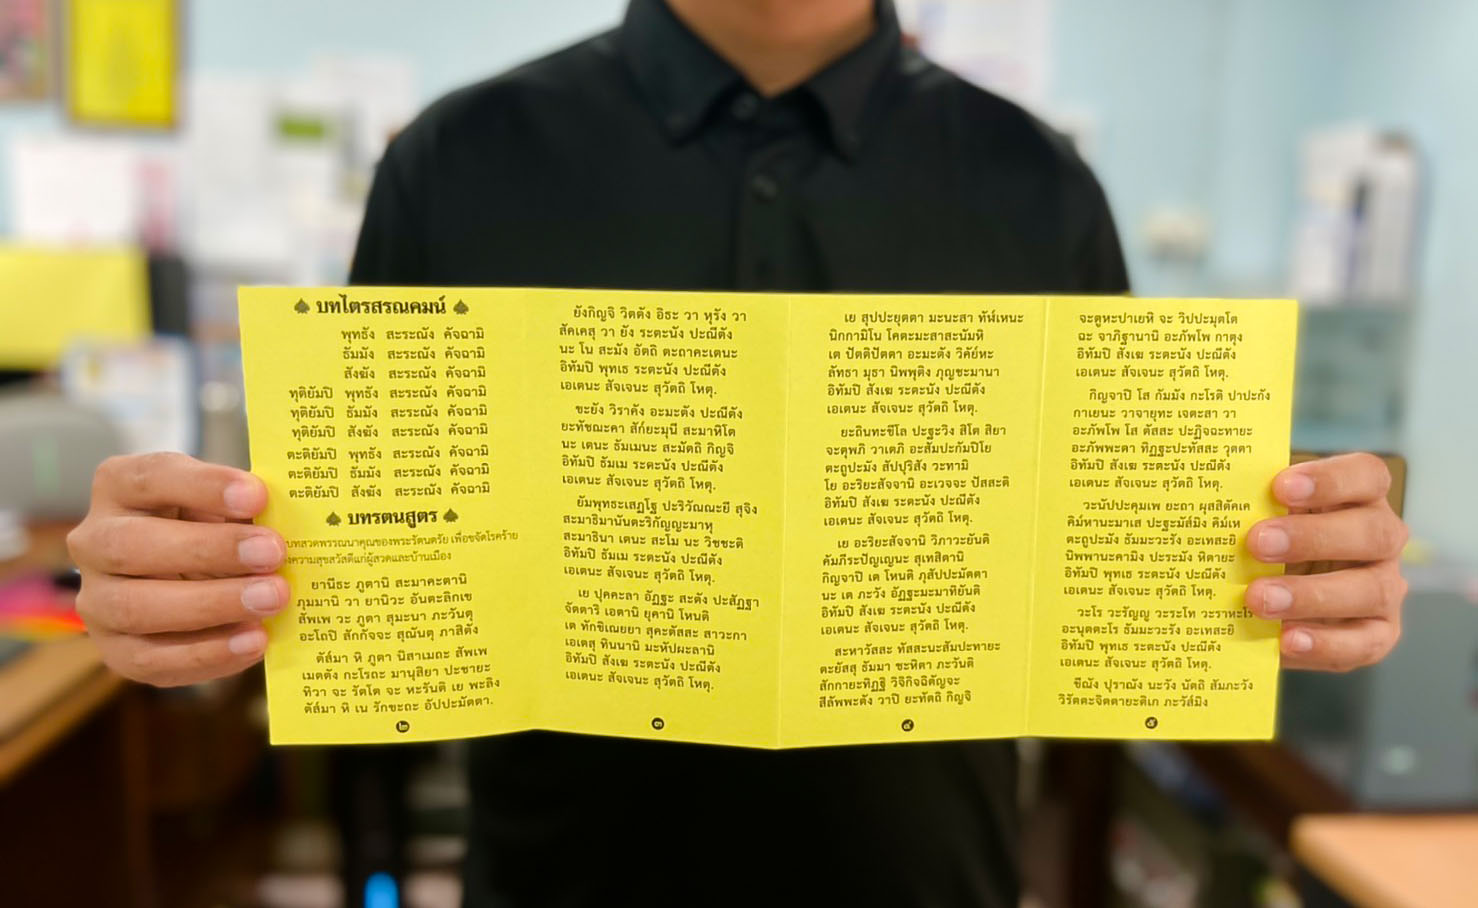 บทไตรสรณคมน์
พุทธัง สะระณัง คัจฉามิ
ธัมมัง สะระณัง คัจฉามิ
สังฆัง สะระณัง คัจฉามิ
ทุติยัมปิ พุทธัง สะระณัง คัจฉามิ
ทุติยัมปิ ธัมมัง สะระณัง คัจฉามิ
ทุติยัมปิ สังฆัง สะระณัง คัจฉามิ
ตะติยัมปิ พุทธัง สะระณัง คัจฉามิ
ตะติยัมปิ ธัมมัง สะระณัง คัจฉามิ
ตะติยัมปิ สังฆัง สะระณัง คัจฉามิ
บทรตนสูตร
บทสวดพรรณนาคุณของพระรัตนตรัย เพื่อขจัดโรคร้าย
ความสุขสวัสดีแก่ผู้สวดและบ้านเมือง
ยานีธะ ภูตานิ สะมาคะตานิ
ภุมมานิ วา ยานิวะ อันตะลิกเข
สัพเพ วะ ภูตา สุมะนา ภะวันตุ
อะโถปิ สักกัจจะ สุณันตุ ภาสิตัง
ตัส๎มา หิ ภูตา นิสาเมถะ สัพเพ
เมตตัง กะโรถะ มานุสิยา ปะชายะ
ทิวา จะ รัตโต จะ หะรันติ เย พะลิง
ตัส๎มา หิ เน รักขะถะ อัปปะมัตตา.
๒
ยังกิญจิ วิตตัง อิธะ วา หุรัง วา
สัคเคสุ วา ยัง ระตะนัง ปะณีตัง
นะ โน สะมัง อัตถิ ตะถาคะเตนะ
อิทัมปิ พุทเธ ระตะนัง ปะณีตัง
เอเตนะ สัจเจนะ สุวัตถิ โหตุ.
ขะยัง วิราคัง อะมะตัง ปะณีตัง
ยะทัชฌะคา สัก๎ยะมุนี สะมาหิโต
นะ เตนะ ธัมเมนะ สะมัตถิ กิญจิ
อิทัมปิ ธัมเม ระตะนัง ปะณีตัง
เอเตนะ สัจเจนะ สุวัตถิ โหตุ.
ยัมพุทธะเสฏโฐ ปะริวัณณะยี สุจิง
สะมาธิมานันตะริกัญญะมาหุ
สะมาธินา เตนะ สะโม นะ วิชชะติ
อิทัมปิ ธัมเม ระตะนัง ปะณีตัง
เอเตนะ สัจเจนะ สุวัตถิ โหตุ.
เย ปุคคะลา อัฏฐะ สะตัง ปะสัฏฐา
จัตตาริ เอตานิ ยุคานิ โหนติ
เต ทักขิเณยยา สุคะตัสสะ สาวะกา
เอเตสุ ทินนานิ มะหัปผะลานิ
อิทัมปิ สังเฆ ระตะนัง ปะณีตัง
เอเตนะ สัจเจนะ สุวัตถิ โหตุ.
๓
เย สุปปะยุตตา มะนะสา ทัฬ๎เหนะ
นิกกามิโน โคตะมะสาสะนัมหิ
เต ปัตติปัตตา อะมะตัง วิคัย๎หะ
ลัทธา มุธา นิพพุติง ภุญชะมานา
อิทัมปิ สังเฆ ระตะนัง ปะณีตัง
เอเตนะ สัจเจนะ สุวัตถิ โหตุ.
ยะถินทะขีโล ปะฐะวิง สิโต สิยา
จะตุพภิ วาเตภิ อะสัมปะกัมปิโย
ตะถูปะมัง สัปปุริสัง วะทามิ
โย อะริยะสัจจานิ อะเวจจะ ปัสสะติ
อิทัมปิ สังเฆ ระตะนัง ปะณีตัง
เอเตนะ สัจเจนะ สุวัตถิ โหตุ.
เย อะริยะสัจจานิ วิภาวะยันติ
คัมภีระปัญเญนะ สุเทสิตานิ
กิญจาปิ เต โหนติ ภุสัปปะมัตตา
นะ เต ภะวัง อัฏฐะมะมาทิยันติ
อิทัมปิ สังเฆ ระตะนัง ปะณีตัง
เอเตนะ สัจเจนะ สุวัตถิ โหตุ.
สะหาวัสสะ ทัสสะนะสัมปะทายะ
ตะยัสสุ ธัมมา ชะหิตา ภะวันติ
สักกายะทิฏฐิ วิจิกิจฉิตัญจะ
สีลัพพะตัง วาปิ ยะทัตถิ กิญจิ
๔
จะตูหะปาเยหิ จะ วิปปะมุตโต
ฉะ จาภิฐานานิ อะภัพโพ กาตุง
อิทัมปิ สังเฆ ระตะนัง ปะณีตัง
เอเตนะ สัจเจนะ สุวัตถิ โหตุ.
กิญจาปิ โส กัมมัง กะโรติ ปาปะกัง
กาเยนะ วาจายุทะ เจตะสา วา
อะภัพโพ โส ตัสสะ ปะฏิจฉะทายะ
อะภัพพะตา ทิฏฐะปะทัสสะ วุตตา
อิทัมปิ สังเฆ ระตะนัง ปะณีตัง
เอเตนะ สัจเจนะ สุวัตถิ โหตุ.
วะนัปปะคุมเพ ยะถา ผุสสิตัคเค
คิม๎หานะมาเส ปะฐะมัส๎มิง คิม๎เห
ตะถูปะมัง ธัมมะวะรัง อะเทสะยิ
นิพพานะคามิง ปะระมัง หิตายะ
อิทัมปิ พุทเธ ระตะนัง ปะณีตัง
เอเตนะ สัจเจนะ สุวัตถิ โหตุ.
วะโร วะรัญญู วะระโท วะราหะโร
อะนุตตะโร ธัมมะวะรัง อะเทสะยิ
อิทัมปิ พุทเธ ระตะนัง ปะณีตัง
เอเตนะ สัจเจนะ สุวัตถิ โหตุ.
ขีณัง ปุราณัง นะวัง นัตถิ สัมภะวัง
วิรัตตะจิตตายะติเก ภะวัส๎มิง
๕